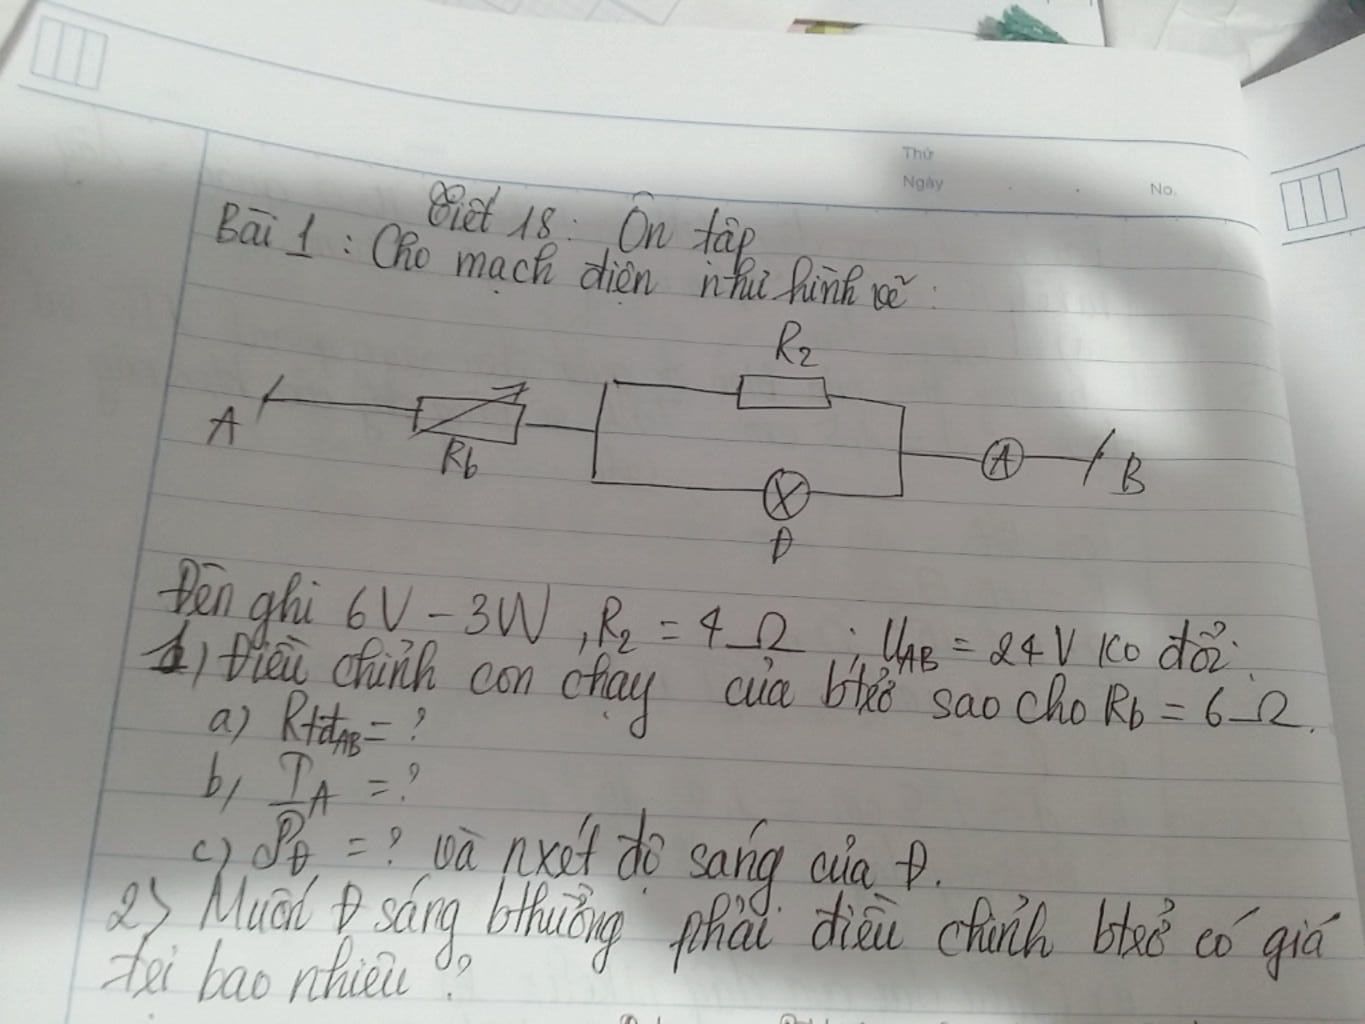 Thứ
Ngày . . No.
Tiết 18: Ôn tập
Bài 1: Cho mạch điện như hình vẽ:
R2
A
Rb
A
B
Đ
Đèn ghi 6V - 3W, R2 = 4Ω; UAB = 24V ko đổi.
1) Điều chỉnh con chạy của btrở sao cho Rb = 6Ω.
a) RtđAB = ?
b, IA = ?
c) PĐ = ? và nxét độ sáng của Đ.
2) Muốn Đ sáng bthường phải điều chỉnh btrở có giá
trị bao nhiêu?